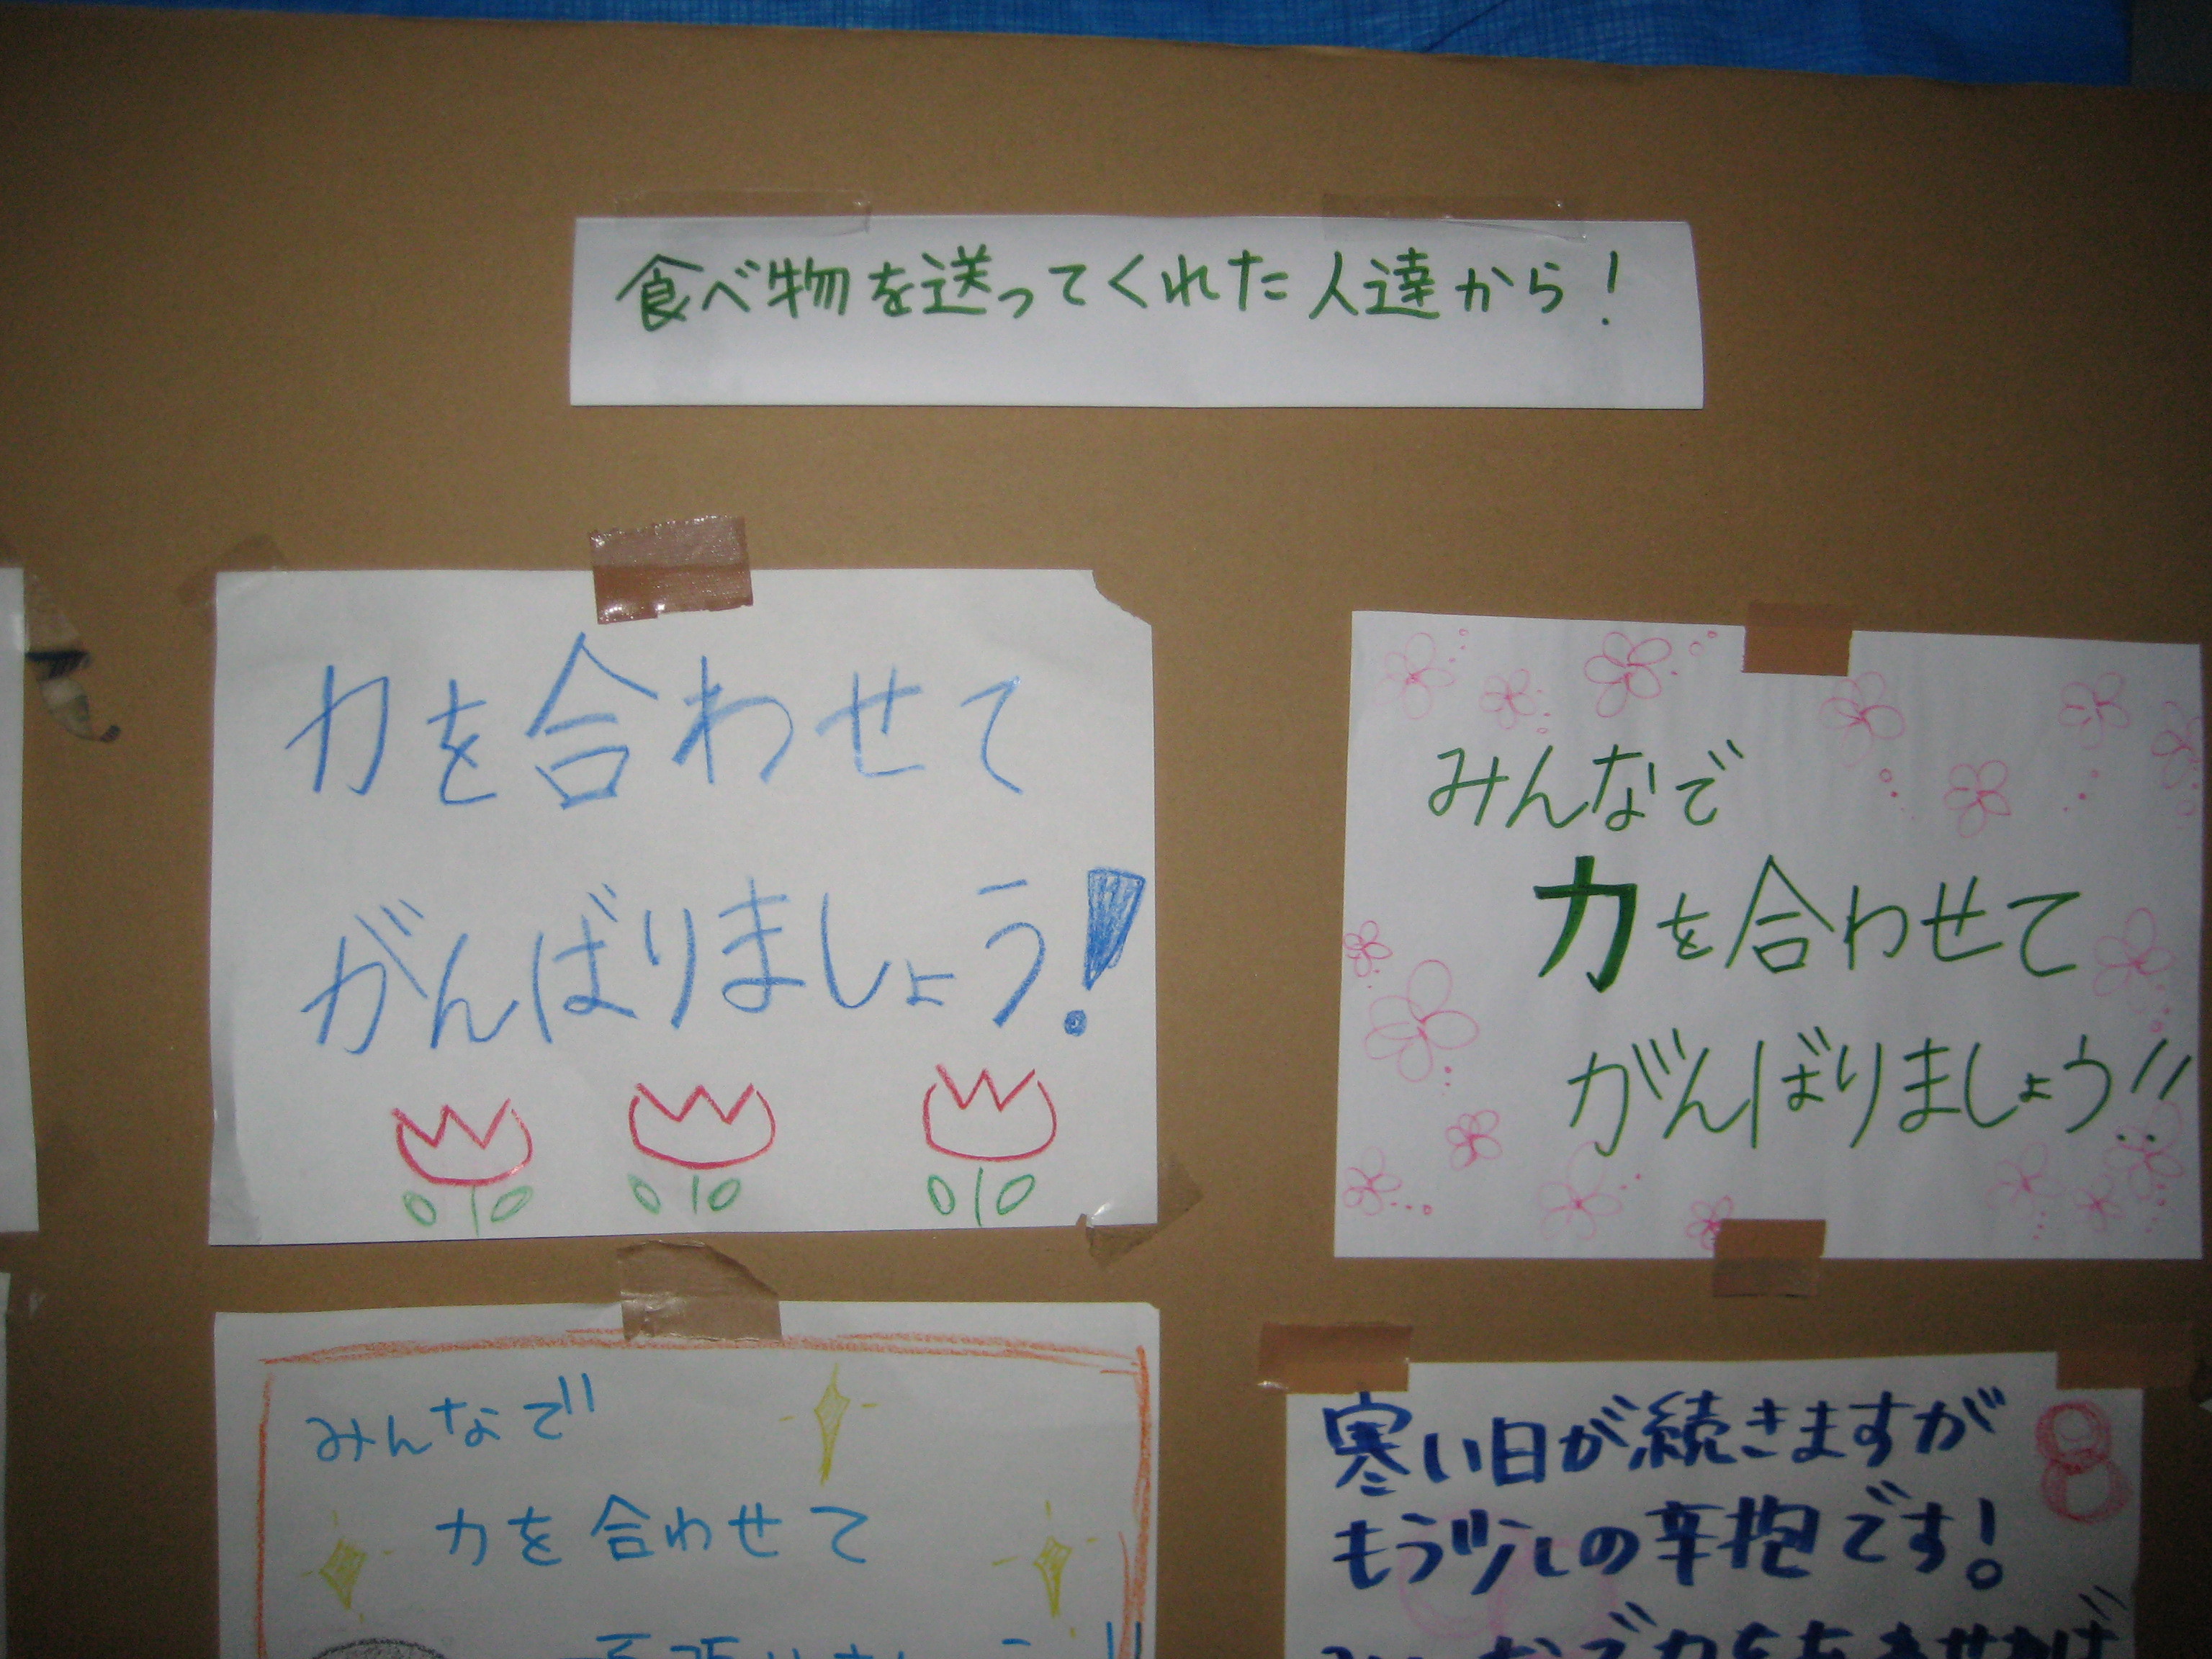 食べ物を送ってくれた人達から!
力を合わせて
がんばりましょう!
みんなで
力を合わせて
がんばりましょう!!
みんなで
力を合わせて
寒い日が続きますが
もう少しの辛抱です!